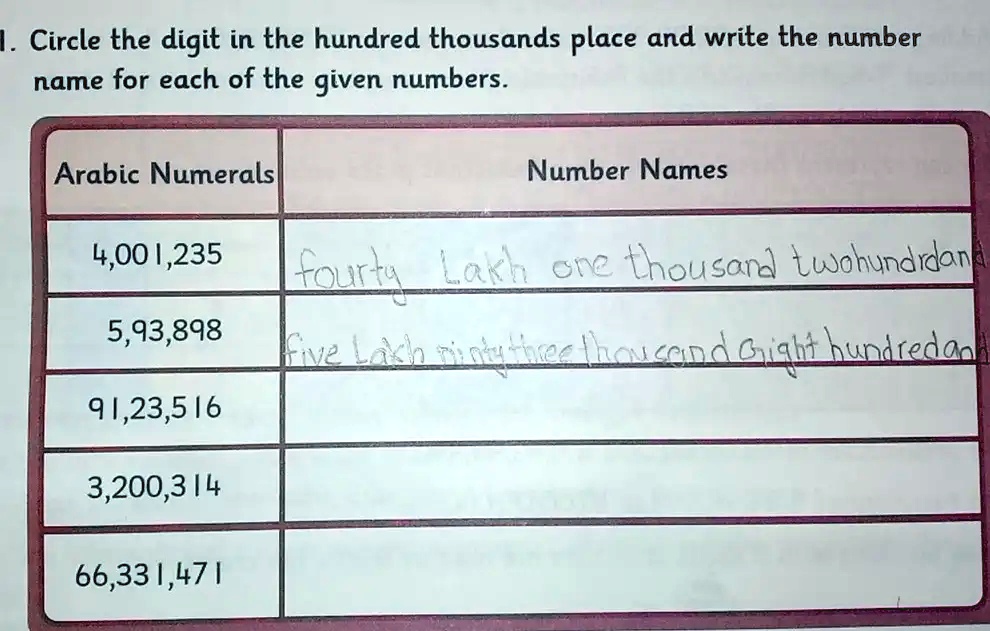 1. Circle the digit in the hundred thousands place and write the number
name for each of the given numbers.
Arabic Numerals Number Names
4,001,235 fourty Lakh one thousand twohundrdand
5,93,898 five Lakh ninty three thousand eight hundred and
91,23,516
3,200,314
66,331,471